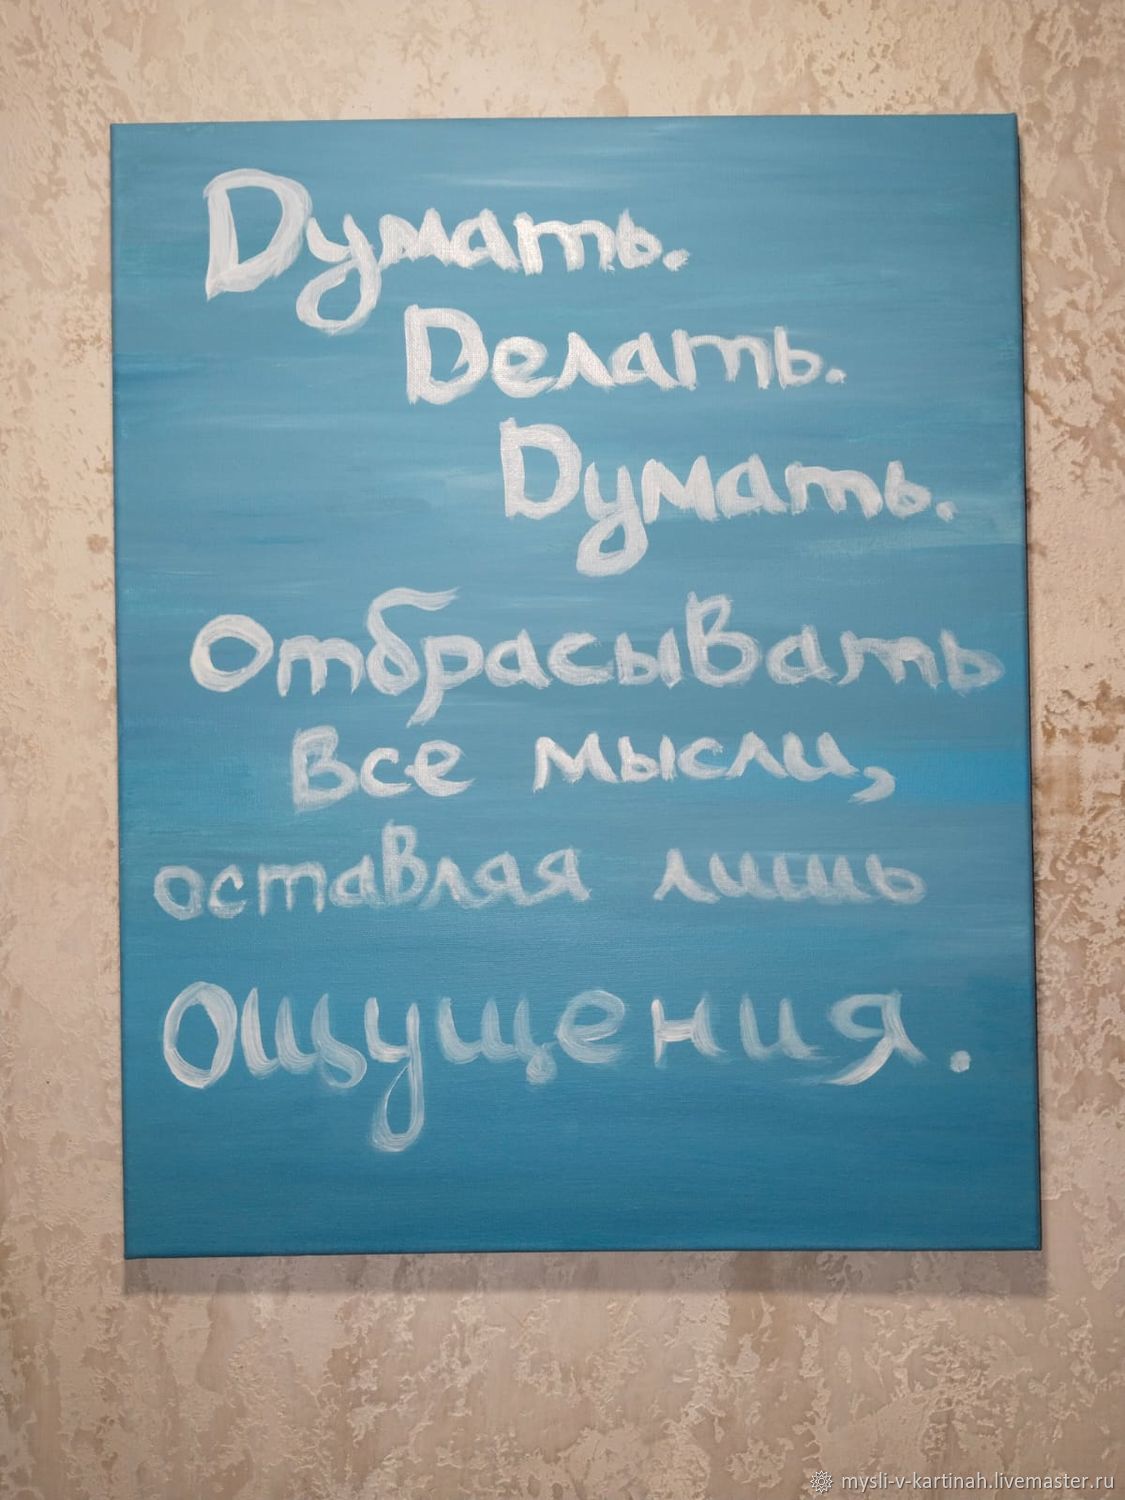 Думать.
Делать.
Думать.
Отбрасывать
все мысли,
оставляя лишь
Ощущения.
mysli-v-kartinah.livemaster.ru